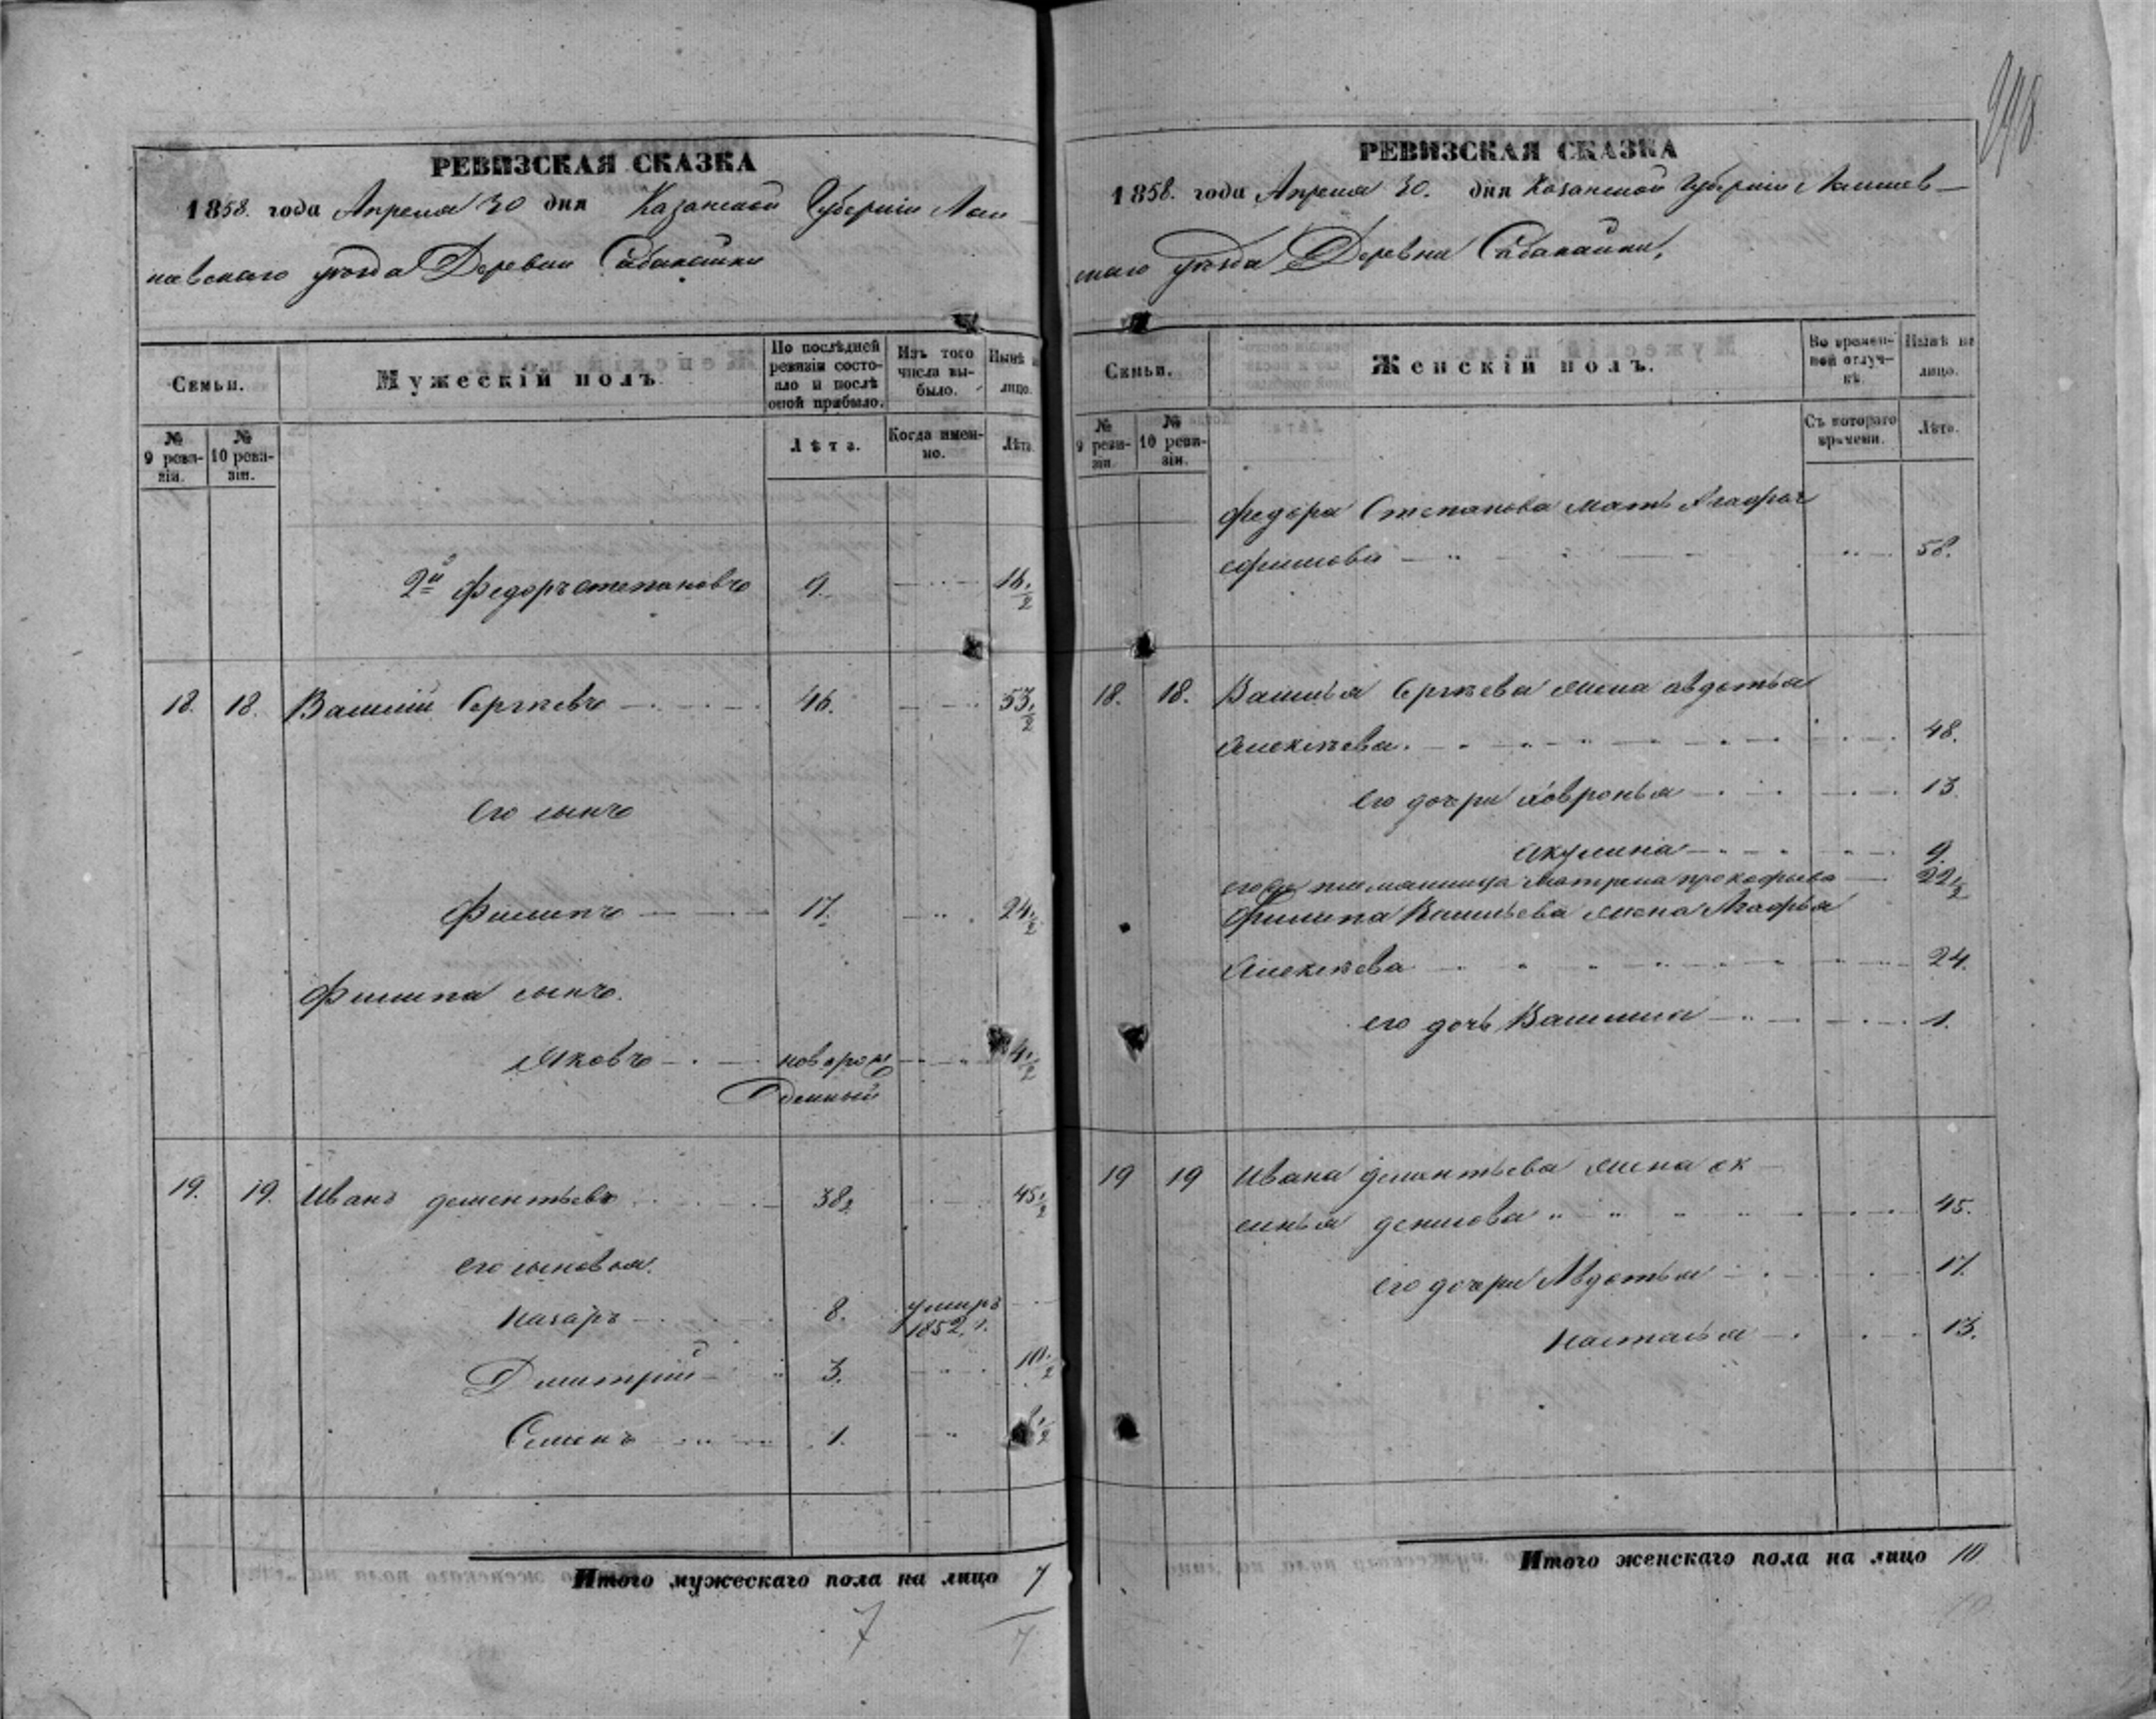 298
РЕВИЗСКАЯ СКАЗКА
1858. года Апреля 30 дня Казанской Губернии Лаи
шевскаго уѣзда Деревни Сабакайки
Семьи.
Мужескій полъ.
По послѣдней ревизіи состояло и послѣ оной прибыло.
Изъ того числа выбыло.
Нынѣ на лицо.
№ 9 ревизіи.
№ 10 ревизіи.
Лѣта.
Когда именно.
Лѣта.
2й Федоръ Степановъ 9. 16 1/2
18. 18. Василий Сергѣевъ 46. 53 1/2
Его сынъ
Филипъ 17. 24 1/2
Филипа сынъ.
Яковъ новорож 4 1/2
денный
19. 19. Иванъ дементьевъ 38 45 1/2
его сыновья.
Назаръ 8. умиръ
1852. г.
Дмитрий 3. 10 1/2
Семенъ 1.
Итого мужескаго пола на лицо 7
7
7
РЕВИЗСКАЯ СКАЗКА
1858. года Апреля 30. дня Казанской Губернии Лаишев
скаго уѣзда Деревни Сабакайки,
Семьи.
Женскій полъ.
Во временной отлучкѣ.
Нынѣ на лицо.
№ 9 ревизіи.
№ 10 ревизіи.
Съ котораго времени.
Лѣта.
Федора Степанова мать
ефимова 58.
18. 18. Василья Сергѣева жена авдотья
Алексѣева. 48.
Его дочери Ховронья 13
Акулина 9.
его племянница Матрена прокофьева 22 1/2
Филипа Васильева жена Агафья
Алексѣева 24.
его дочь Василиса 1.
19 19 Ивана дементьева жена ак
синья денисова 45.
его дочери Авдотья 17.
Насталья 13.
Итого женскаго пола на лицо 10
10